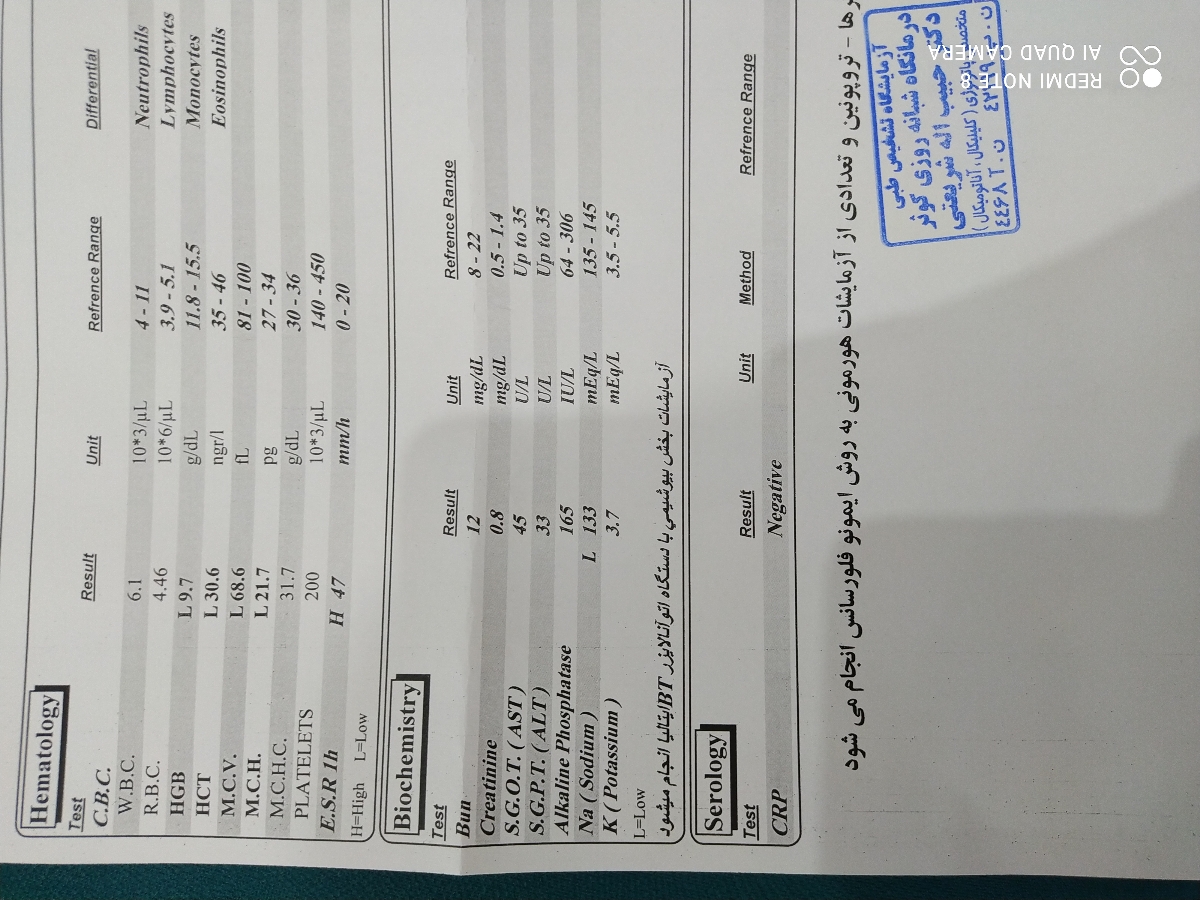 Hematology
Test Result Unit Refrence Range Differential
C.B.C.
W.B.C. 6.1 10*3/µL 4 - 11 Neutrophils
R.B.C. 4.46 10*6/µL 3.9 - 5.1 Lymphocytes
HGB L 9.7 g/dL 11.8 - 15.5 Monocytes
HCT L 30.6 ngr/l 35 - 46 Eosinophils
M.C.V. L 68.6 fL 81 - 100
M.C.H. L 21.7 pg 27 - 34
M.C.H.C. 31.7 g/dL 30 - 36
PLATELETS 200 10*3/µL 140 - 450
E.S.R 1h H 47 mm/h 0 - 20
H=High L=Low
Biochemistry
Test Result Unit Refrence Range
Bun 12 mg/dL 8 - 22
Creatinine 0.8 mg/dL 0.5 - 1.4
S.G.O.T. ( AST ) 45 U/L Up to 35
S.G.P.T. ( ALT ) 33 U/L Up to 35
Alkaline Phosphatase 165 IU/L 64 - 306
Na ( Sodium ) L 133 mEq/L 135 - 145
K ( Potassium ) 3.7 mEq/L 3.5 - 5.5
L=Low
آزمایشات بخش بیوشیمی با دستگاه اتوآنالایزر BT ایتالیا انجام میشود
Serology
Test Result Unit Method Refrence Range
CRP Negative
رها - تروپونین و تعدادی از آزمایشات هورمونی به روش ایمونو فلورسانس انجام می شود
آزمایشگاه تشخیص طبی
درمانگاه شبانه روزی کوثر
دکتر حبیب اله شریعتی
متخصص پاتولوژی ( کلینیکال ، آناتومیکال )
REDMI NOTE 8
AI QUAD CAMERA